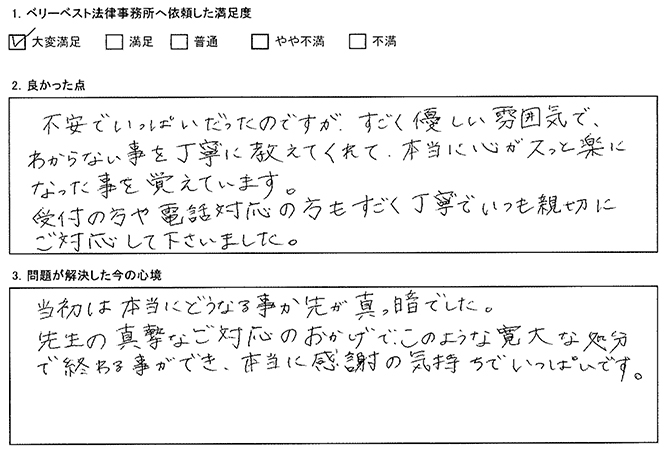 1. ベリーベスト法律事務所へ依頼した満足度
☑ 大変満足 □ 満足 □ 普通 □ やや不満 □ 不満
2. 良かった点
不安でいっぱいだったのですが、すごく優しい雰囲気で、
わからない事を丁寧に教えてくれて、本当に心がスっと楽に
なった事を覚えています。
受付の方や電話対応の方もすごく丁寧でいつも親切に
ご対応して下さいました。
3. 問題が解決した今の心境
当初は本当にどうなる事か先が真っ暗でした。
先生の真摯なご対応のおかげで、このような寛大な処分
で終わる事ができ、本当に感謝の気持ちでいっぱいです。